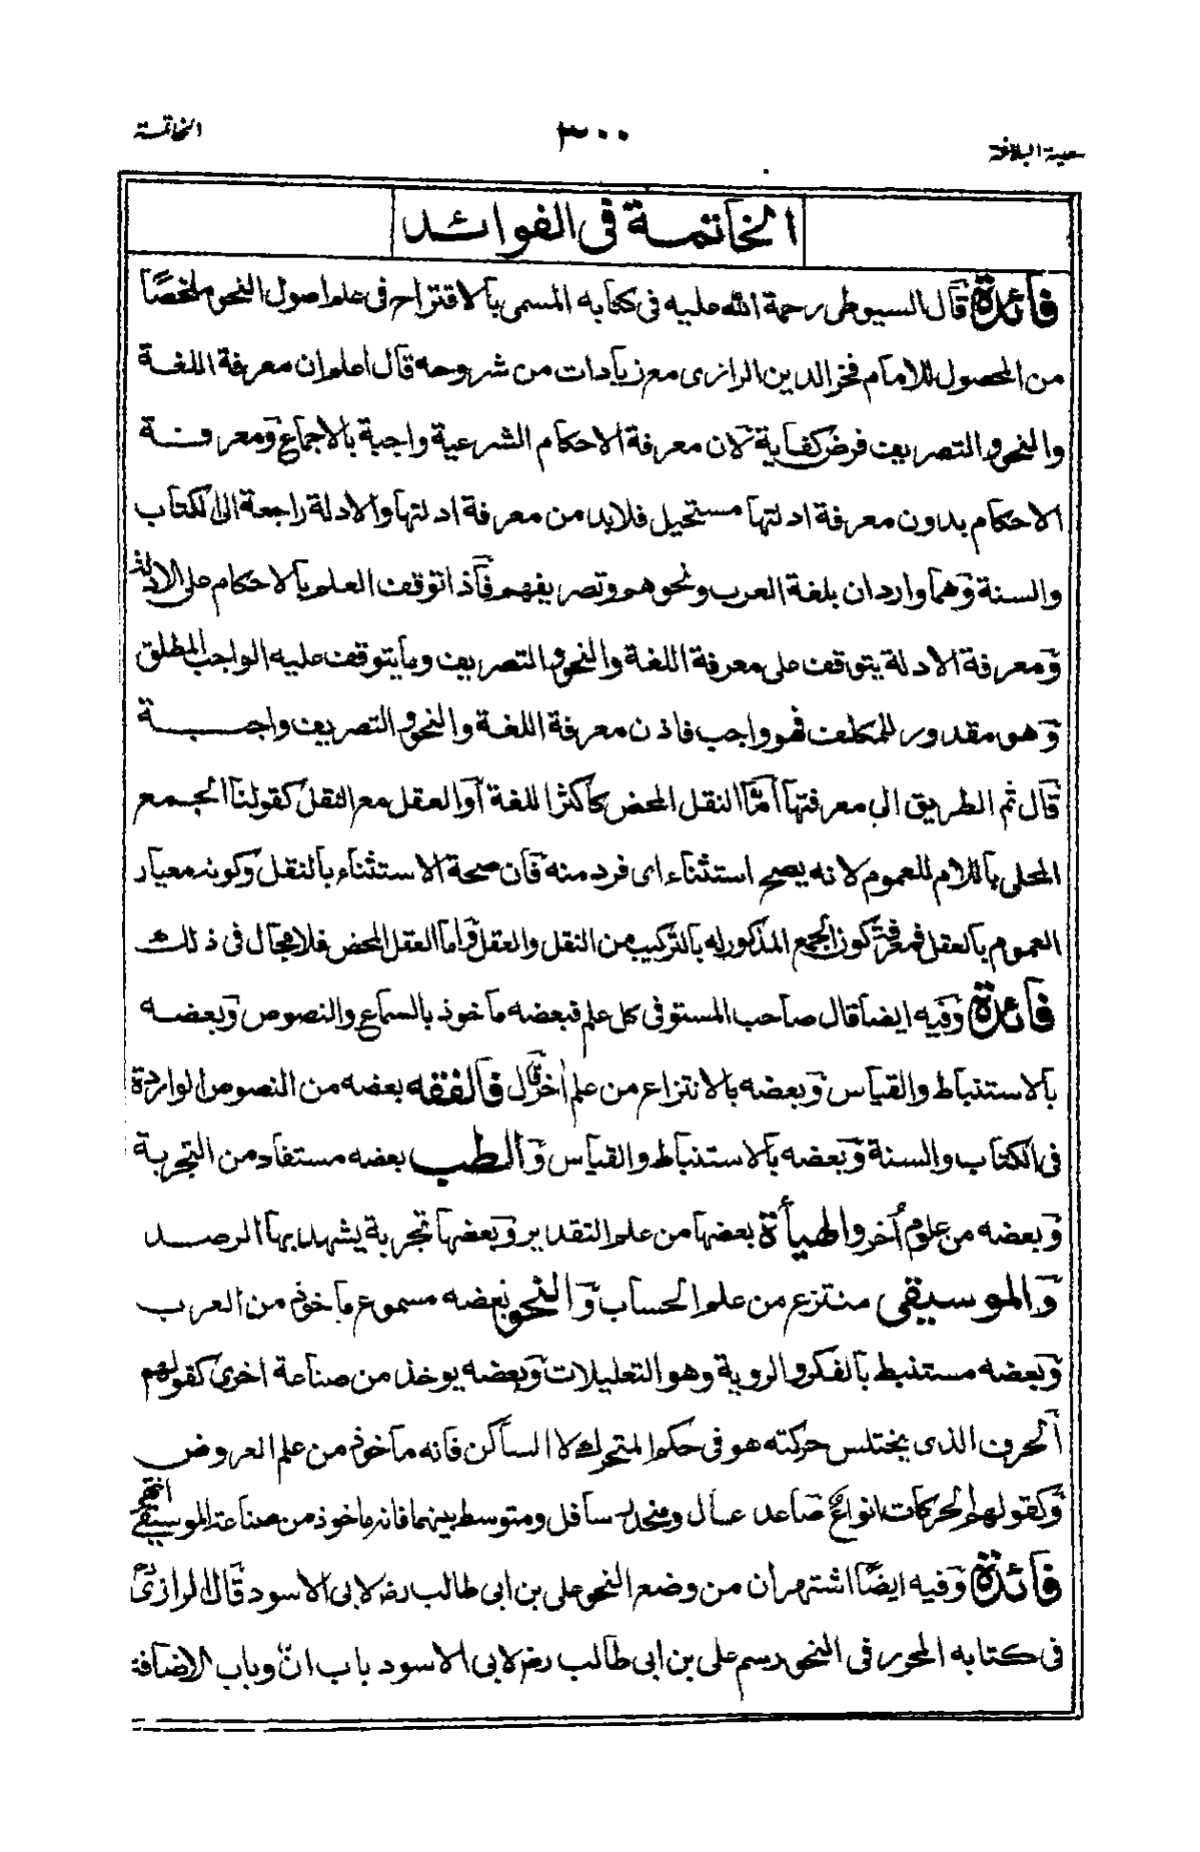 الخاتمة
٣٠٠
سعية البلاغة
الخاتمة في الفوائد
فائدة قال السيوطي رحمة الله عليه في كتابه المسمى بالاقتراح في علم اصول النحو ملخصًا
من المحصول للامام فخر الدين الرازى مع زيادات من شروحه قال اعلم ان معرفة اللغة
والنحو والتصريف فرض كفاية لان معرفة الاحكام الشرعية واجبة بالاجماع ومعرفة
الاحكام بدون معرفة ادلتها مستحيل فلابد من معرفة ادلتها والادلة راجعة الى الكتاب
والسنة وهما واردان بلغة العرب ونحوهم وتصريفهم فاذا توقف العلم بالاحكام على الادلة
ومعرفة الادلة يتوقف على معرفة اللغة والنحو والتصريف وما يتوقف عليه الواجب المطلق
وهو مقدور للمكلف فهو واجب فاذن معرفة اللغة والنحو والتصريف واجبة
قال ثم الطريق الى معرفتها أمّا النقل المحض كاكثر اللغة أو العقل مع النقل كقولنا الجمع
المحلى باللام للعموم لانه يصح استثناء اى فرد منه فان صحة الاستثناء بالنقل وكونه معيار
العموم بالعقل فمعرفة كون الجمع المذكور له بالتركيب من النقل والعقل واما العقل المحض فلا مجال فى ذلك
فائدة وفيه ايضا قال صاحب المستوفى كل علم فبعضه ماخوذ بالسماع والنصوص وبعضه
بالاستنباط والقياس وبعضه بالانتزاع من علم أخر قال فالفقه بعضه من النصوص الواردة
فى الكتاب والسنة وبعضه بالاستنباط والقياس والطب بعضه مستفاد من التجربة
وبعضه من علوم أخر والهيأة بعضها من علم التقدير وبعضها تجربة يشهد بها الرصد
والموسيقى منتزع من علم الحساب والنحو بعضه مسموع ماخوذ من العرب
وبعضه مستنبط بالفكر والروية وهو التعليلات وبعضه يوخذ من صناعة اخرى كقولهم
الحرف الذى يختلس حركته هو فى حكم المتحرك لا الساكن فانه ماخوذ من علم العروض
وكقولهم الحركات انواعٌ صاعد عال ومنحدر سافل ومتوسط بينهما فانه ماخوذ من صناعة الموسيقى انتهى
فائدة وفيه ايضًا اشتهر ان من وضع النحو على بن ابى طالب رض لابى الاسود قال الرازىُّ
فى كتابه المحرر فى النحو رسم على بن ابى طالب رض لابى الاسود باب انّ وباب الاضافة